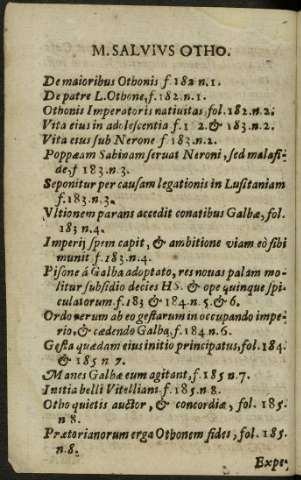 M. SALVIVS OTHO.
De maioribus Othonis f. 182 n. 1.
De patre L. Othone, f. 182. n. 1.
Othonis Imperatoris natiuitas, fol. 182. n. 2.
Vita eius in adolescentia f. 1 2. & 183. n. 2.
Vita eius sub Nerone f 183. n. 2.
Poppæam Sabinam seruat Neroni, sed malafi-
de, f 183. n 3.
Seponitur per causam legationis in Lusitaniam
f. 183. n. 3.
Vltionem parans accedit conatibus Galbæ, fol.
183 n. 4.
Imperij spem capit, & ambitione viam eò sibi
munit f. 183. n. 4.
Pisone á Galba adoptato, res nouas palam mo-
litur subsidio decies HS. & ope quinque spi-
culatorum. f. 183 & 184. n. 5. & 6.
Ordo rerum ab eo gestarum in occupando impe-
rio, & cædendo Galba, f. 184 n. 6.
Gesta quædam eius initio principatus, fol. 184.
& 185 n 7.
Manes Galbæ eum agitant, f. 185 n 7.
Initia belli Vitelliani f. 185. n 8.
Otho quietis auctor, & concordiæ, fol. 185.
n 8.
Prætorianorum erga Othonem fides, fol. 185.
n. 8.
Expe,